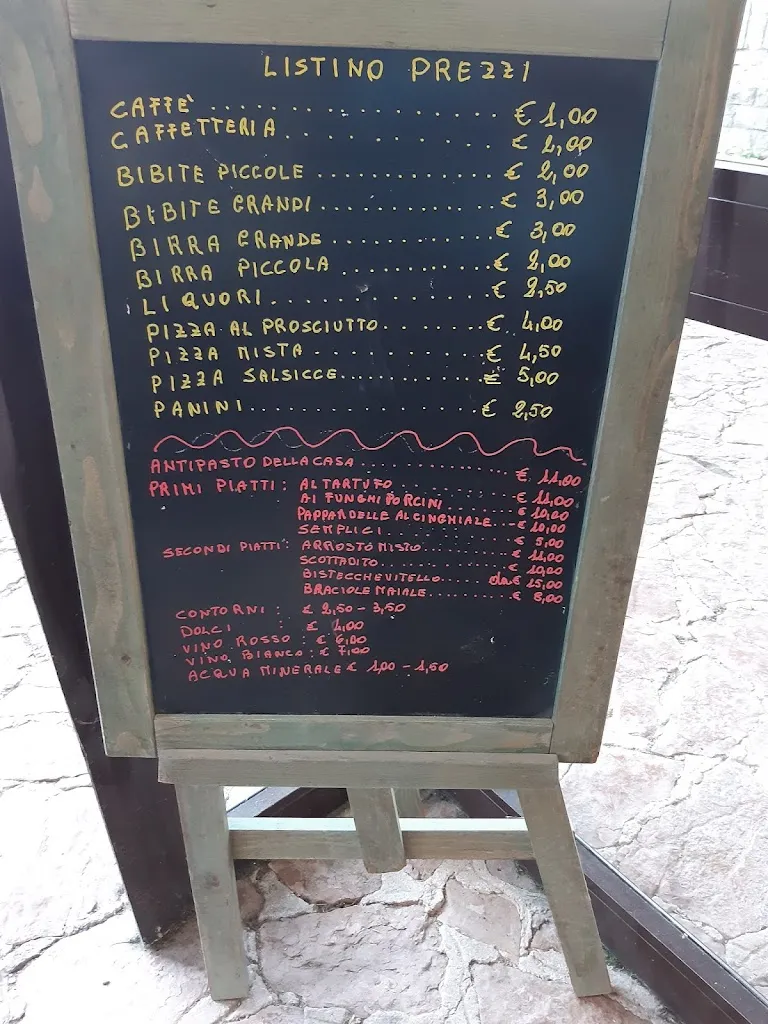 LISTINO PREZZI
CAFFE' .................. € 1,00
CAFFETTERIA.............. € 2,00
BIBITE PICCOLE .............. € 2,00
BIBITE GRANDI .............. € 3,00
BIRRA GRANDE .............. € 3,00
BIRRA PICCOLA ............ € 2,00
LIQUORI................. € 2,50
PIZZA AL PROSCIUTTO........ € 4,00
PIZZA MISTA ............. € 4,50
PIZZA SALSICCE........... € 5,00
PANINI.................. € 2,50
ANTIPASTO DELLA CASA ............... € 11,00
PRIMI PIATTI: AL TARTUFO ............ € 11,00
AI FUNGHI PORCINI ........ € 10,00
PAPPARDELLE AL CINGHIALE...- € 10,00
SEMPLICI .............. € 5,00
SECONDI PIATTI: ARROSTO MISTO .......... € 11,00
SCOTTADITO............. € 10,00
BISTECCHE VITELLO...... da € 15,00
BRACIOLE MAIALE......... € 8,00
CONTORNI : € 2,50 - 3,50
DOLCI : €
VINO ROSSO : € 6,00
VINO BIANCO : € 7,00
ACQUA MINERALE € 1,00 - 1,50